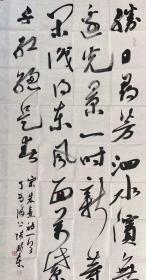 勝日尋芳泗水濱無
邊光景一時新等
閑識得東風面萬紫
千紅總是春
宋朱熹詩一首
丁酉